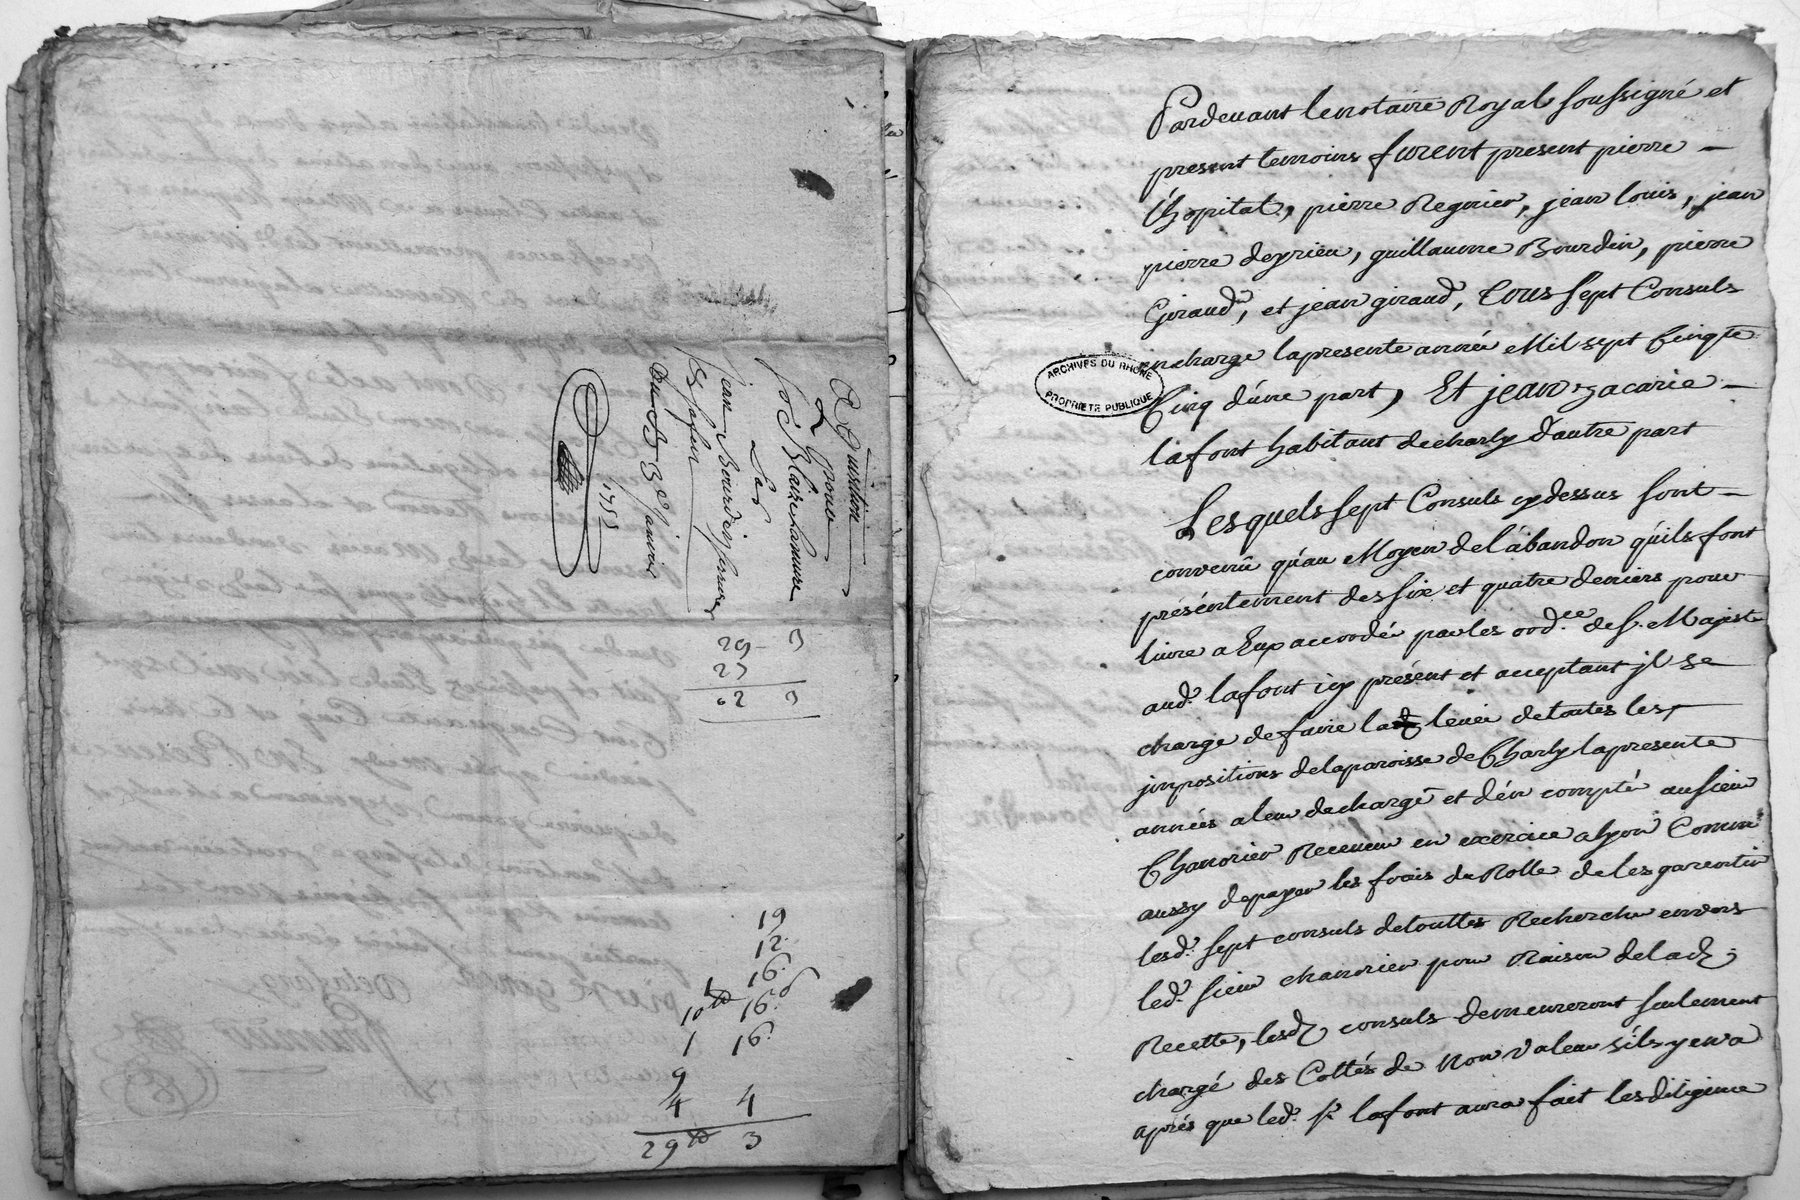 Acquisition
Pour
Blaise Lamure
jean Bourdin
Du 3e Janvier
1755
29 3
23
62 3
19
12
16
10 16 d
1 16
9
4 4
29 3
Pardevant le notaire Royal soussigné et
present temoins furent present pierre
L'hopital, pierre Regnier, jean louis, jean
pierre deyrieu, guillaume Bourdin, pierre
Giraud, et jean giraud, tous sept Consuls
en charge la presente année Mil sept Cinqte
ARCHIVES DU RHÔNE
PROPRIÉTÉ PUBLIQUE
Cinq d'une part, Et jean zacarie
lafont habitant de charly d'autre part
Lesquels sept Consuls cy dessus sont
convenu qu'au Moyen de l'abandon qu'ils font
présentement des six et quatre deniers pour
livre a Eux accordée par les ordce de S. Majesté
aud. lafont icy présent et acceptant jl se
charge de faire la levée de toutes les
jmpositions de la paroisse de Charly la presente
années a leur decharge et d'en compté au sieur
Chanorier Receveur en exercice a lyon Comme
aussy de payer les frais du Rolle de les garentir
lesd. sept consuls de touttes Recherche envers
led. sieur chanorier pour Raison de lad.
Recette, lesd. consuls demeureront seulement
chargé des Cottés de Non Valeur s'ils y en a
aprés que led. sr. lafont aura fait les diligence